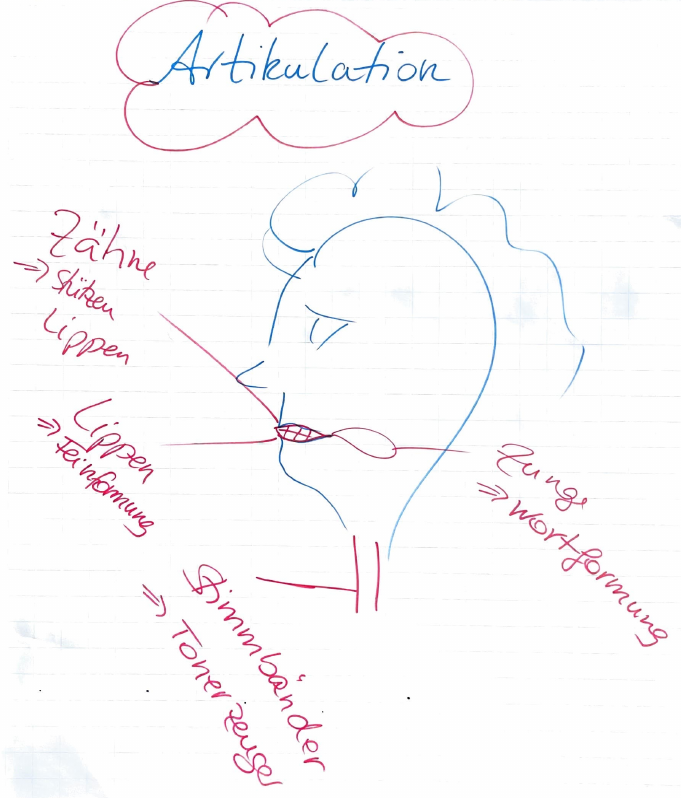 Artikulation
Zähne
=> Stützen
Lippen
Lippen
=> Feinformung
Zunge
=> Wortformung
Stimmbänder
=> Tonerzeuger